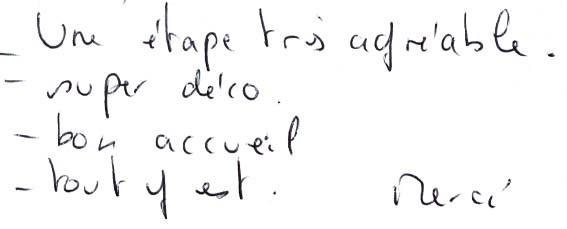 - Une étape très agréable.
- super déco.
- bon accueil
- tout y est. Merci